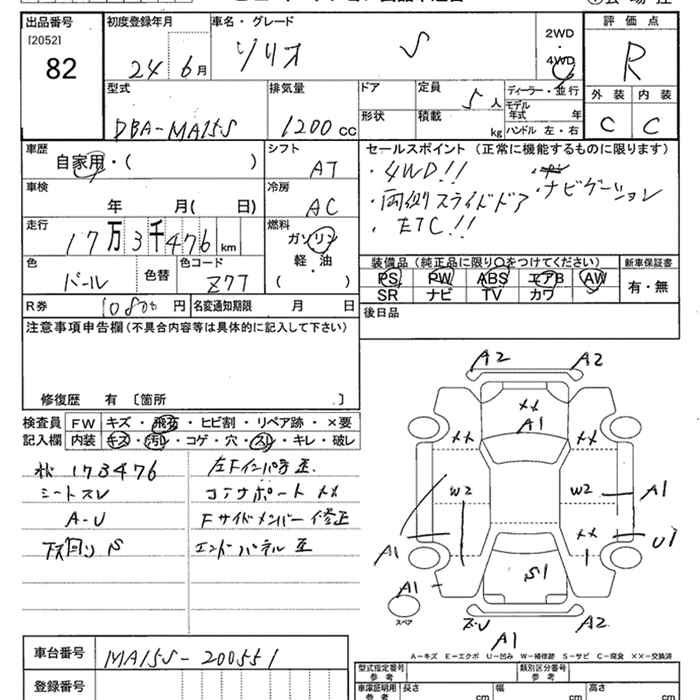 出品番号
[2052]
82
初度登録年月
24年6月
車名・グレード
ソリオ S
2WD
・
4WD
評価点
R
外装 内装
C C
型式
DBA-MA15S
排気量
1200cc
ドア
形状
定員
5人
積載
kg
ディーラー・並行
モデル年式 年
ハンドル 左・右
車歴
自家用・( )
シフト
AT
車検
年 月( 日)
冷房
AC
走行
17万3千476km
燃料
ガソリン
軽・油
( )
色
パール
色替
色コード
Z7T
R券
10800円
名変通知期限 月 日
セールスポイント (正常に機能するものに限ります)
・4WD!!
・両側スライドドア
・ナビゲーション
・ETC!!
装備品 (純正品に限り○をつけてください)
PS PW ABS エアB AW
SR ナビ TV カワ
新車保証書
有・無
後日品
注意事項申告欄(不具合内容等は具体的に記入して下さい)
修復歴 有 〔箇所 〕
検査員記入欄
FW キズ・飛石・ヒビ割・リペア跡・×要
内装 キズ・汚れ・コゲ・穴・スレ・キレ・破レ
173476
シートスレ
A-U
下回りS
左Fインパネ歪
コアサポート××
Fサイドメンバー修正
エンドパネル歪
A2 A2
×× A1
×× ××
W2 W2
A1 A1
×× U1
S1
A1
スペア
A1 A2
A-キズ E-エクボ U-凹み W-補修跡 S-サビ C-腐食 ××-交換済
車台番号
MA15S-200551
登録番号
型式指定番号
参考
類別区分番号
参考
車庫証明用
参考
長さ cm
幅 cm
高さ cm